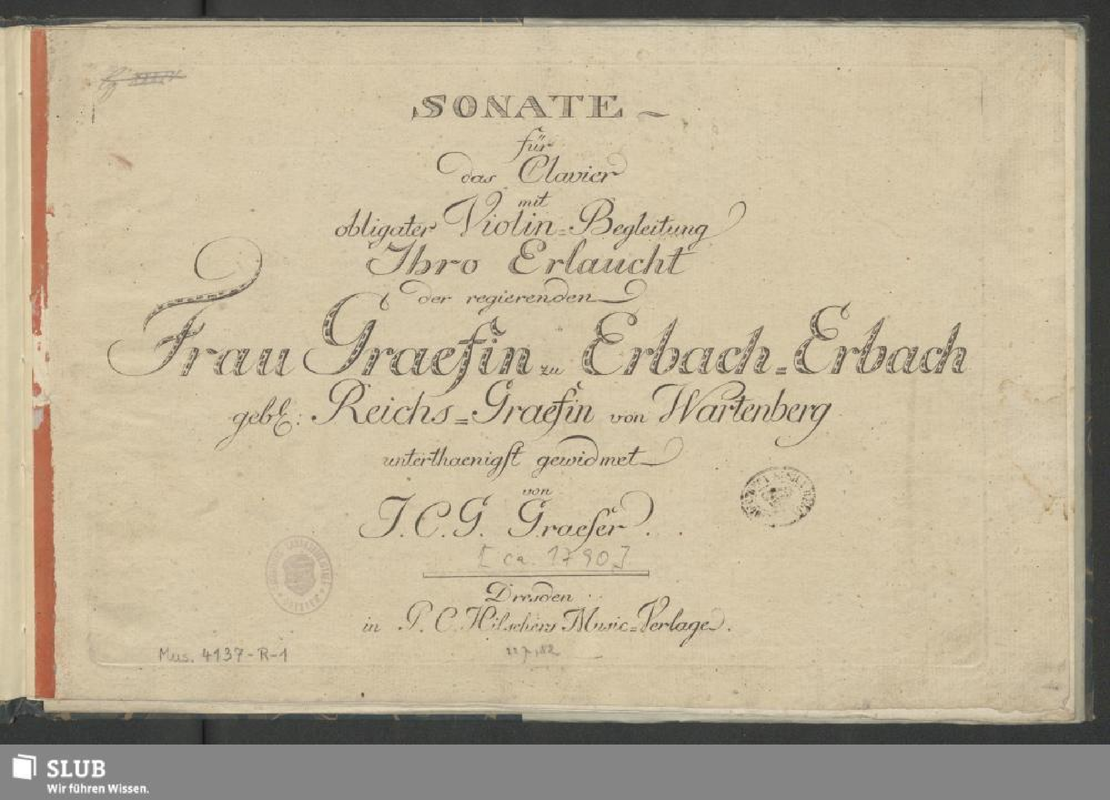 SONATE
für
das Clavier
mit
obligater Violin=Begleitung
Ihro Erlaucht
der regierenden
Frau Graefin zu Erbach=Erbach
geb: Reichs=Graefin von Wartenberg
unterthaenigst gewidmet
von
J. C. G. Graeser.
[ca. 1790]
Dresden
in P. C. Hilschers Music=Verlage.
Mus. 4137-R-1
SLUB
Wir führen Wissen.